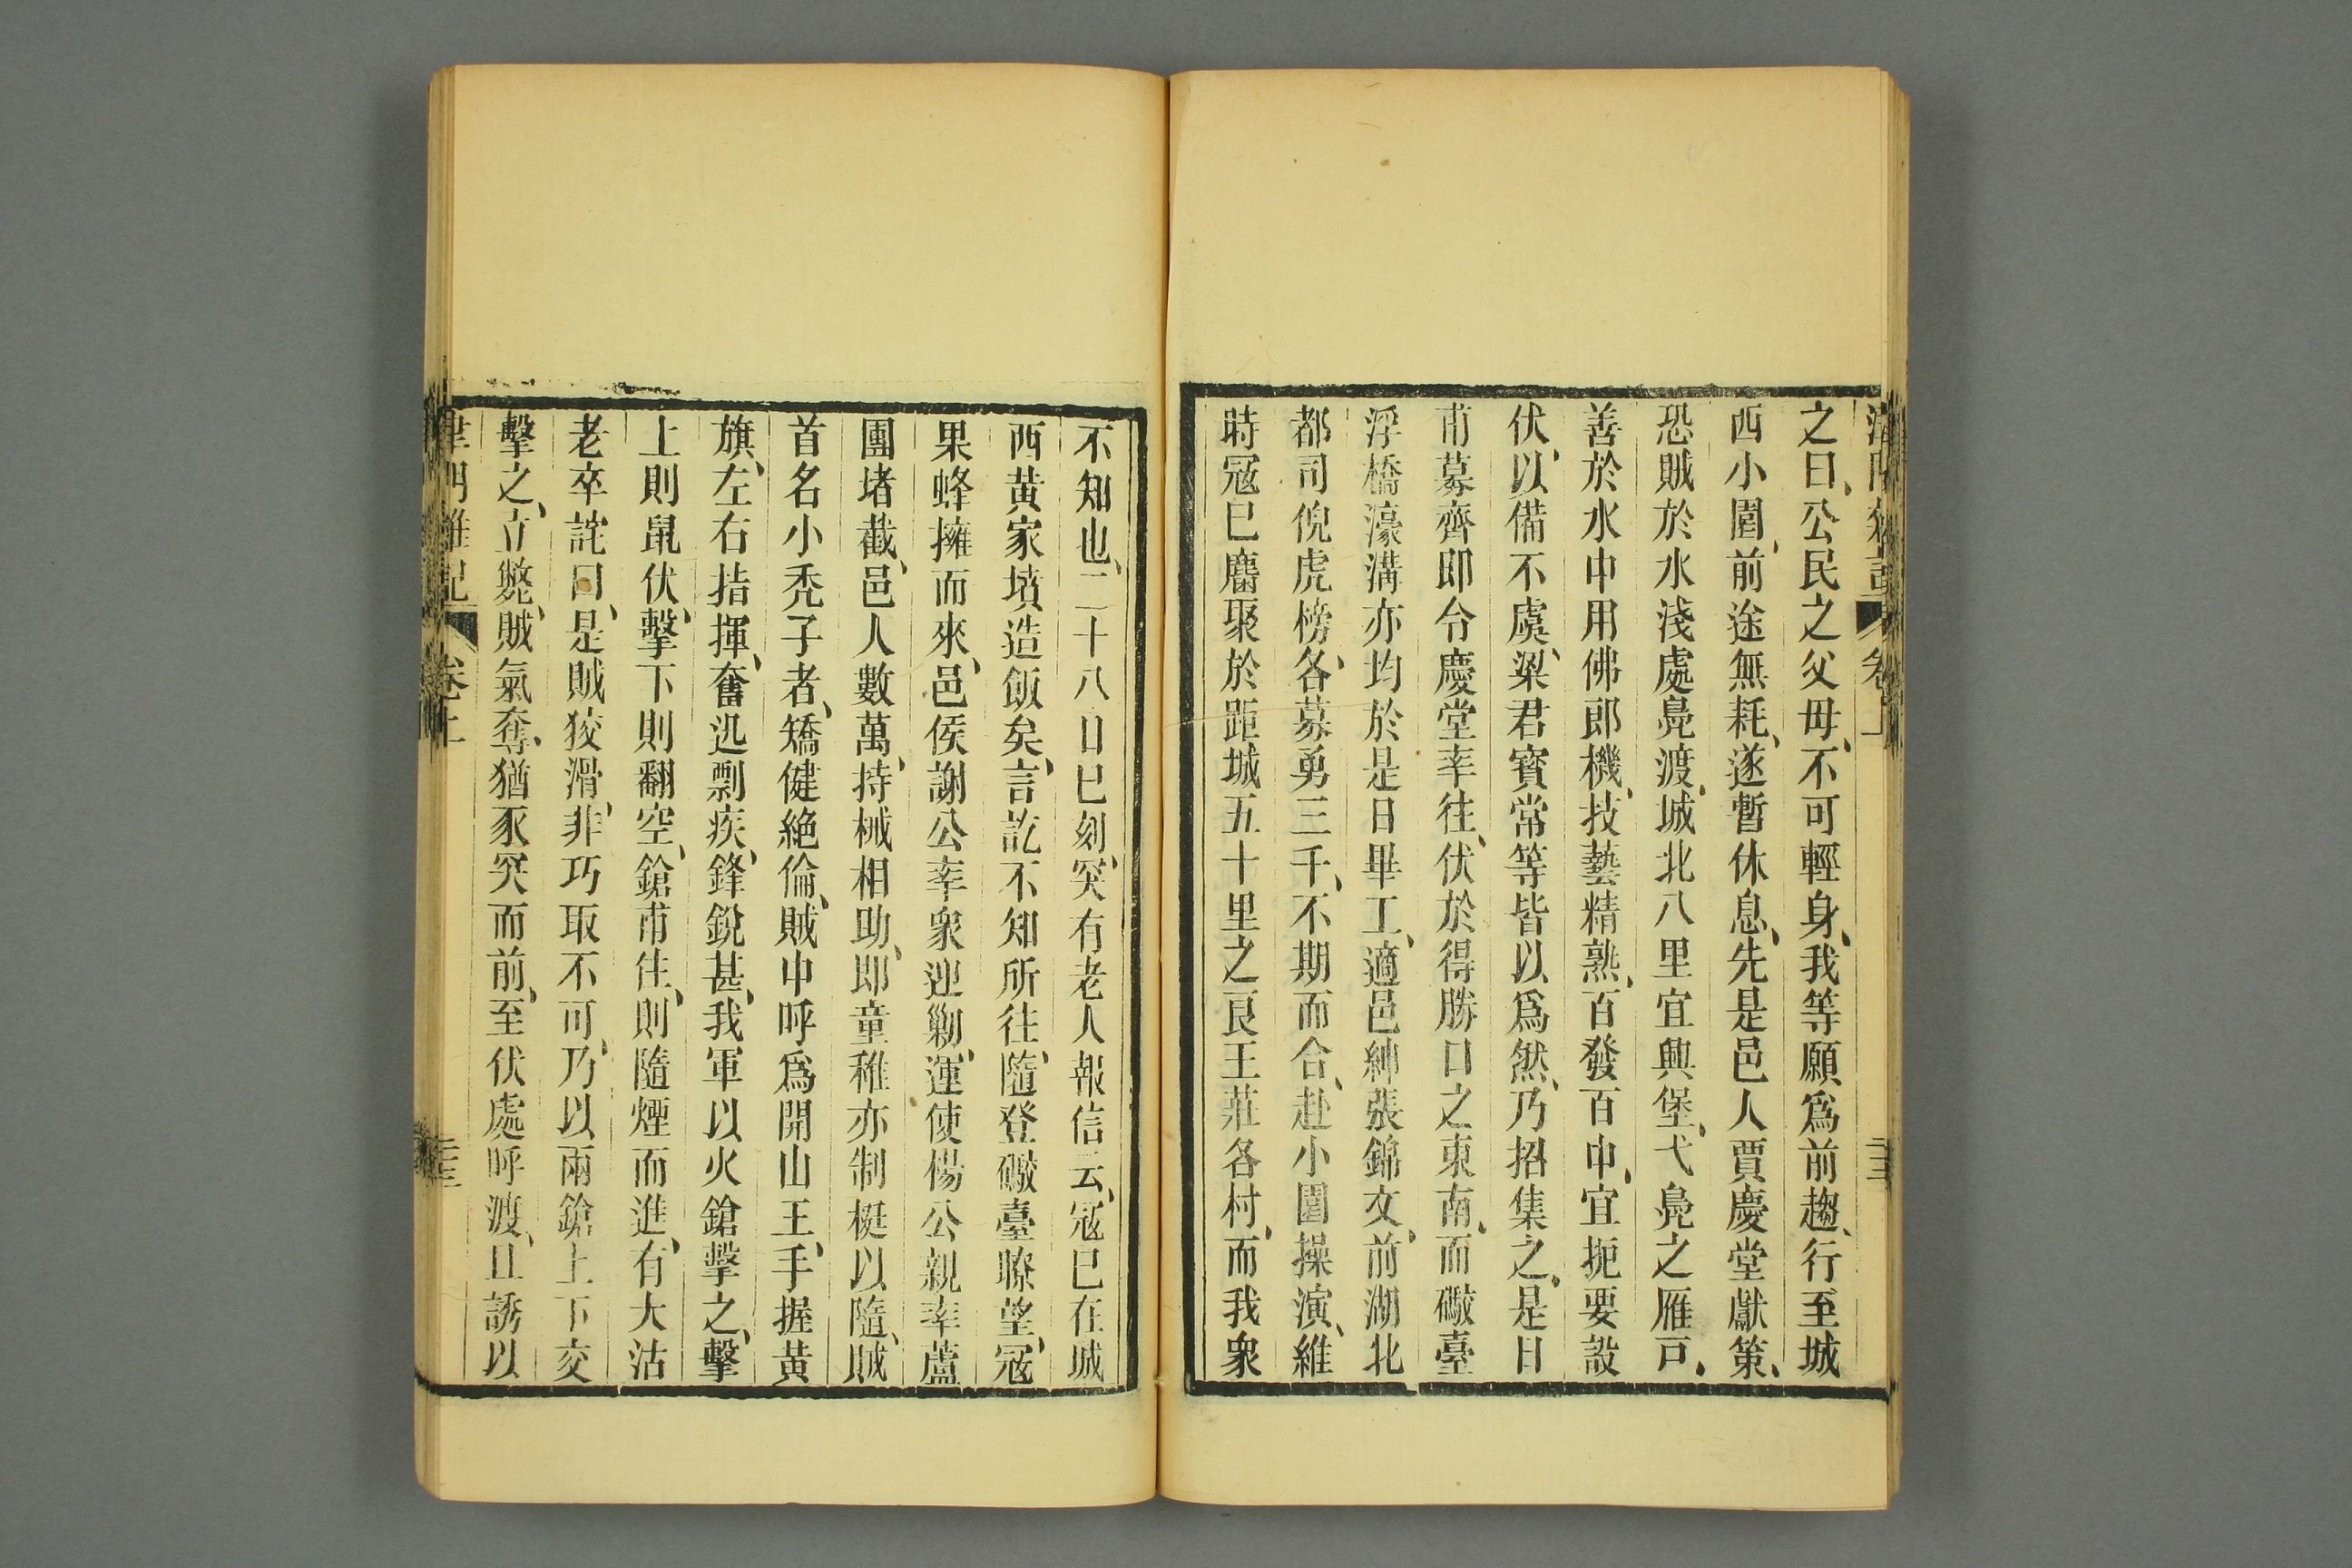 之曰、公民之父毋、不可輕身、我等願爲前趨、行至城
西小園、前途無耗、遂暫休息、先是邑人賈慶堂獻策、
恐賊於水淺處鳧渡、城北八里宜興堡、弋鳧之雁戸、
善於水中用佛郎機、技藝精熟、百發百中、宜扼要設
伏、以備不虞、梁君寳常等皆以爲然、乃招集之、是日
甫募齊即令慶堂率往、伏於得勝口之東南、而礮臺
浮橋濠溝亦均於是日畢工、適邑紳張錦文、前湖北
都司倪虎榜、各募勇三千、不期而合、赴小園操演、維
時冦巳麕聚於距城五十里之良王莊各村、而我衆
不知也、二十八日巳刻、突有老人報信云、冦巳在城
西黄家墳造飯矣、言訖不知所往、隨登礮臺瞭望、冦
果蜂擁而來、邑侯謝公率衆迎勦、運使楊公親率蘆
團堵截、邑人數萬、持械相助、即童稚亦制梃以隨、賊
首名小禿子者、矯健絶倫、賊中呼爲開山王、手握黃
旗、左右指揮、奮迅剽疾、鋒銳甚、我軍以火鎗擊之、擊
上則鼠伏、擊下則翻空、鎗甫住、則隨煙而進、有大沽
老卒詫曰、是賊狡滑、非巧取不可、乃以兩鎗上下交
擊之、立斃、賊氣奪、猶豕突而前、至伏處呼渡、且誘以
津門雜記 卷上 二三